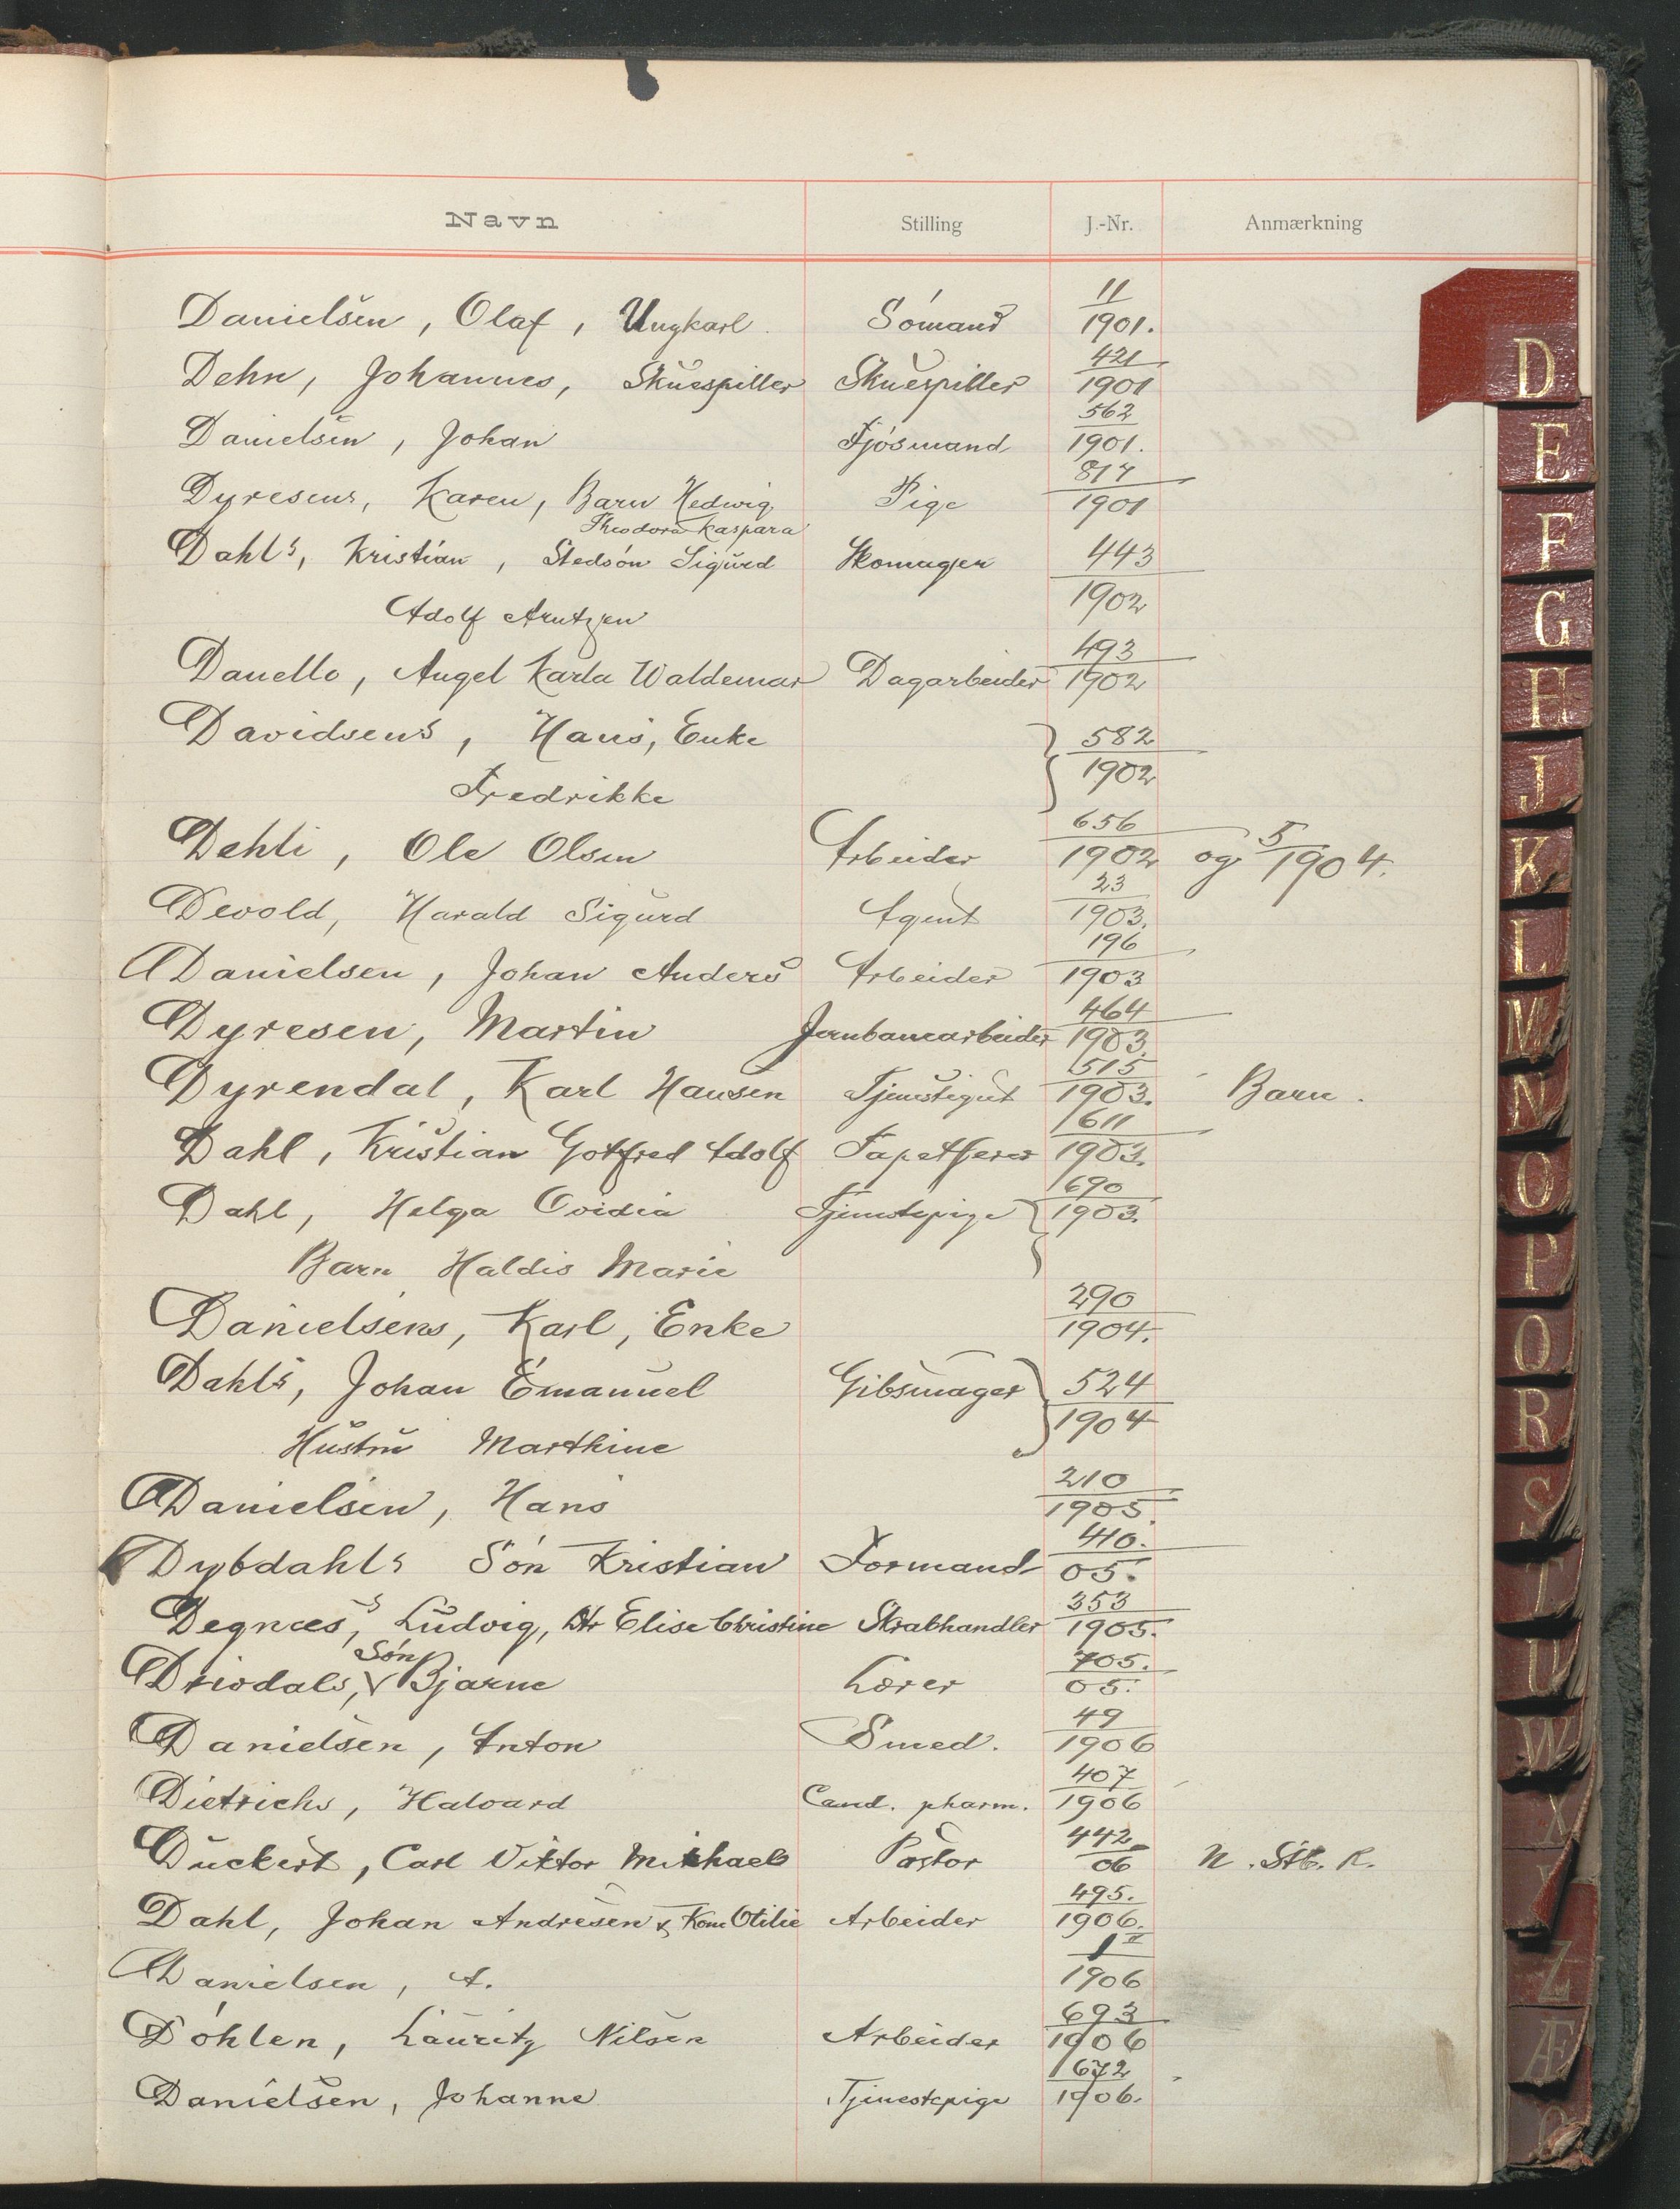 Navn Stilling J.-Nr. Anmærkning
Danielsen, Olaf, Ungkarl. Sømand 11/1901.
Dehn, Johannes, Skuespiller Skuespiller 421/1901
Danielsen, Johan Fjøsmand 562/1901.
Dyresens, Karen, Barn Hedwig Pige 817/1901
Theodora Kaspara
Dahls, Kristian, Stedsøn Sigurd Skomager 443/1902
Adolf Arntzen
Danello, Angel Karla Waldemar Dagarbeider 493/1902
Davidsens, Hans, Enke 582/1902
Fredrikke
Dehli, Ole Olsen Arbeider 656/1902 og 5/1904.
Devold, Harald Sigurd Agent 23/1903.
Danielsen, Johan Anders Arbeider 196/1903
Dyresen, Martin Jernbanearbeider 464/1903.
Dyrendal, Karl Hansen Tjenstegut 515/1903. Barn.
Dahl, Kristian Gotfred Adolf Tapetserer 611/1903.
Dahl, Helga Ovidia Tjenstepige 690/1903.
Barn Haldis Marie
Danielsens, Karl, Enke 290/1904.
Dahls, Johan Emanuel Gibsmager 524/1904
Hustru Marthine
Danielsen, Hans 210/1905.
Dybdahls Søn Kristian Formand 410./05.
Degnæs's, Ludvig, Dtr Elise Christine Skrabhandler 353/1905.
Søn
Drivdals, V Bjarne Lærer 705./05.
Danielsen, Anton Smed. 49/1906
Dietrichs, Halvard Cand. pharm. 407/1906
Duckert, Carl Viktor Mikhael Pastor 442/06 N. Stb. R.
Dahl, Johan Andresen & Kone Otilie Arbeider 495./1906.
Danielsen, A. 1 II/1906
Døhlen, Lauritz Nilsen Arbeider 693/1906
Danielsen, Johanne Tjenestepige 672/1906.
D
E
F
G
H
J
K
L
M
N
O
P
Q
R
S
T
U
W
X
Z
Æ